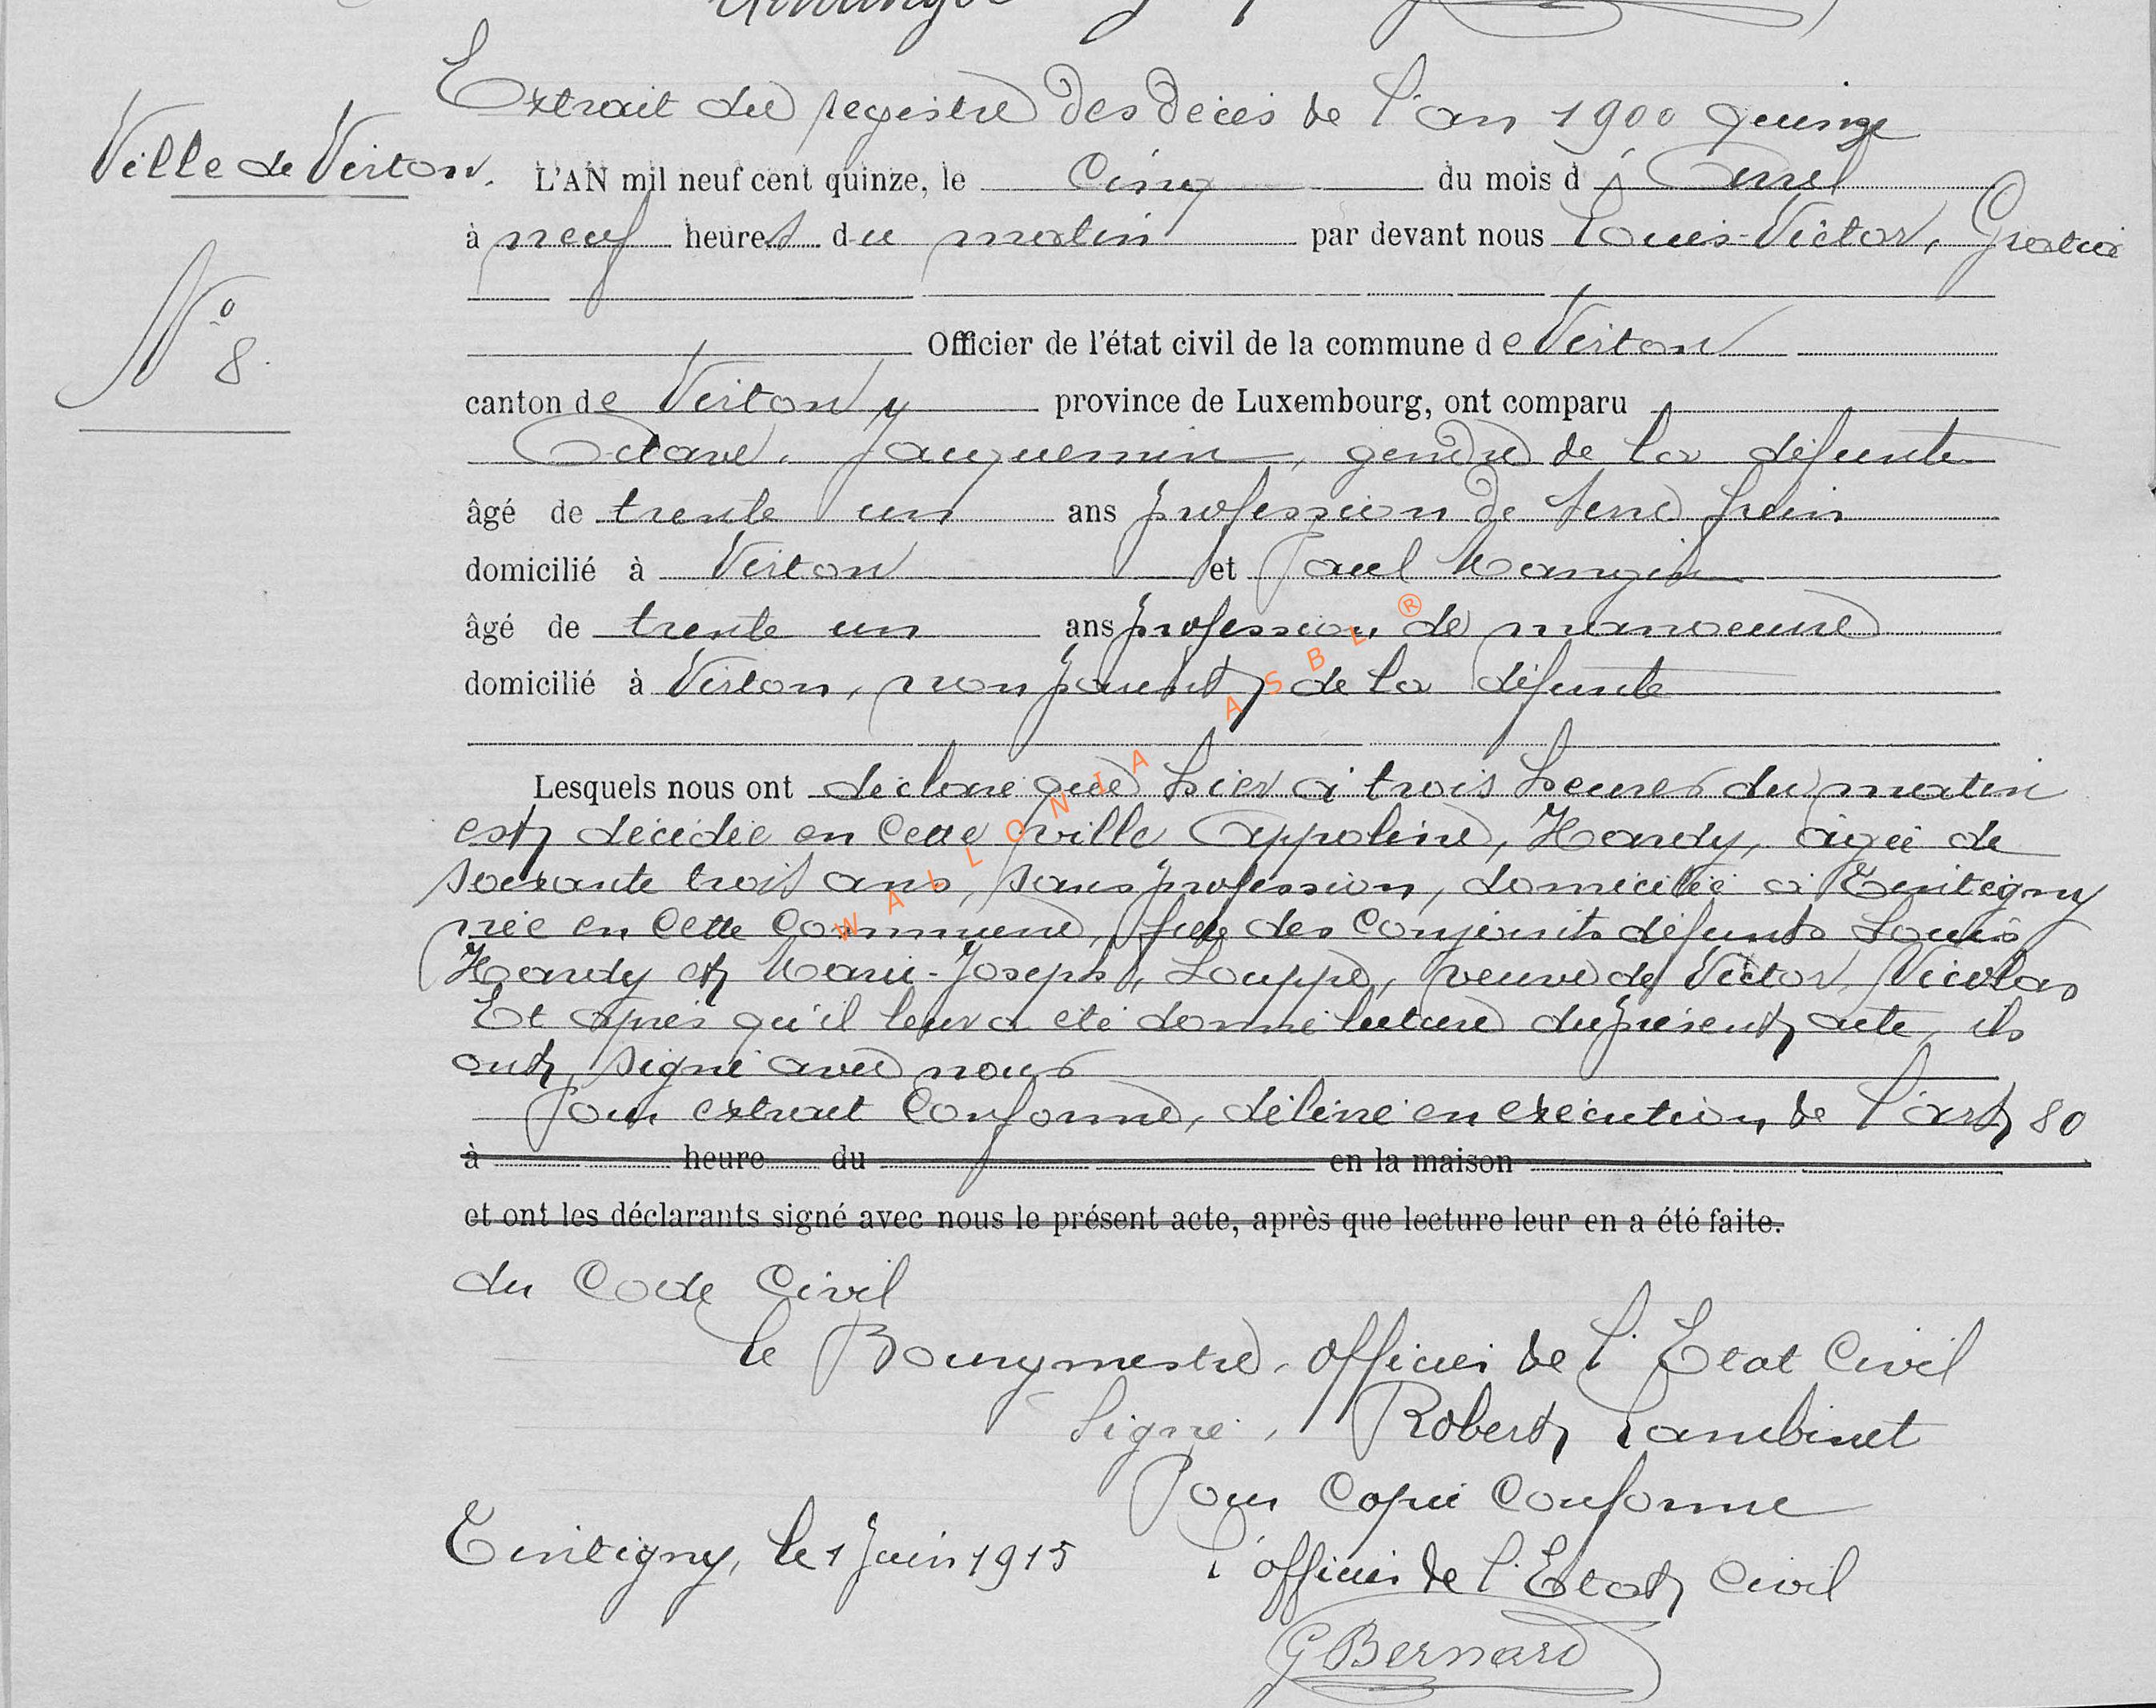 Extrait du registre des décès de l'an 1900 quinze
Ville de Virton.
L'AN mil neuf cent quinze, le cinq du mois d'Avril
à neuf heures du matin par devant nous Louis-Victor, Gratia
N° 8.
Officier de l'état civil de la commune de Virton
canton de Virton province de Luxembourg, ont comparu
Octave, Jacquemin, gendre de la défunte
âgé de trente un ans profession de serre frein
domicilié à Virton et Paul Mangin
âgé de trente un ans profession de manoeuvre
domicilié à Virton, non parent de la défunte
Lesquels nous ont déclaré que hier à trois heures du matin
est décédée en cette ville Appoline, Hardy, âgée de
soixante trois ans, sans profession, domiciliée à Tintigny
née en cette commune, fille des conjoints défunts Louis
Hardy et Marie-Joseph, Louppe, veuve de Victor, Nicolas
Et après qu'il leur a été donné lecture du présent acte, ils
ont signé avec nous
Pour extrait conforme, délivré en exécution de l'art 80
à heure du en la maison
et ont les déclarants signé avec nous le présent acte, après que lecture leur en a été faite.
du Code Civil
le Bourgmestre, officier de l'Etat Civil
Signé, Robert Lambinet
Pour copie conforme
Tintigny, le 1 Juin 1915
l'officier de l'Etat Civil
G Bernard
WALLONIA ASBL ®